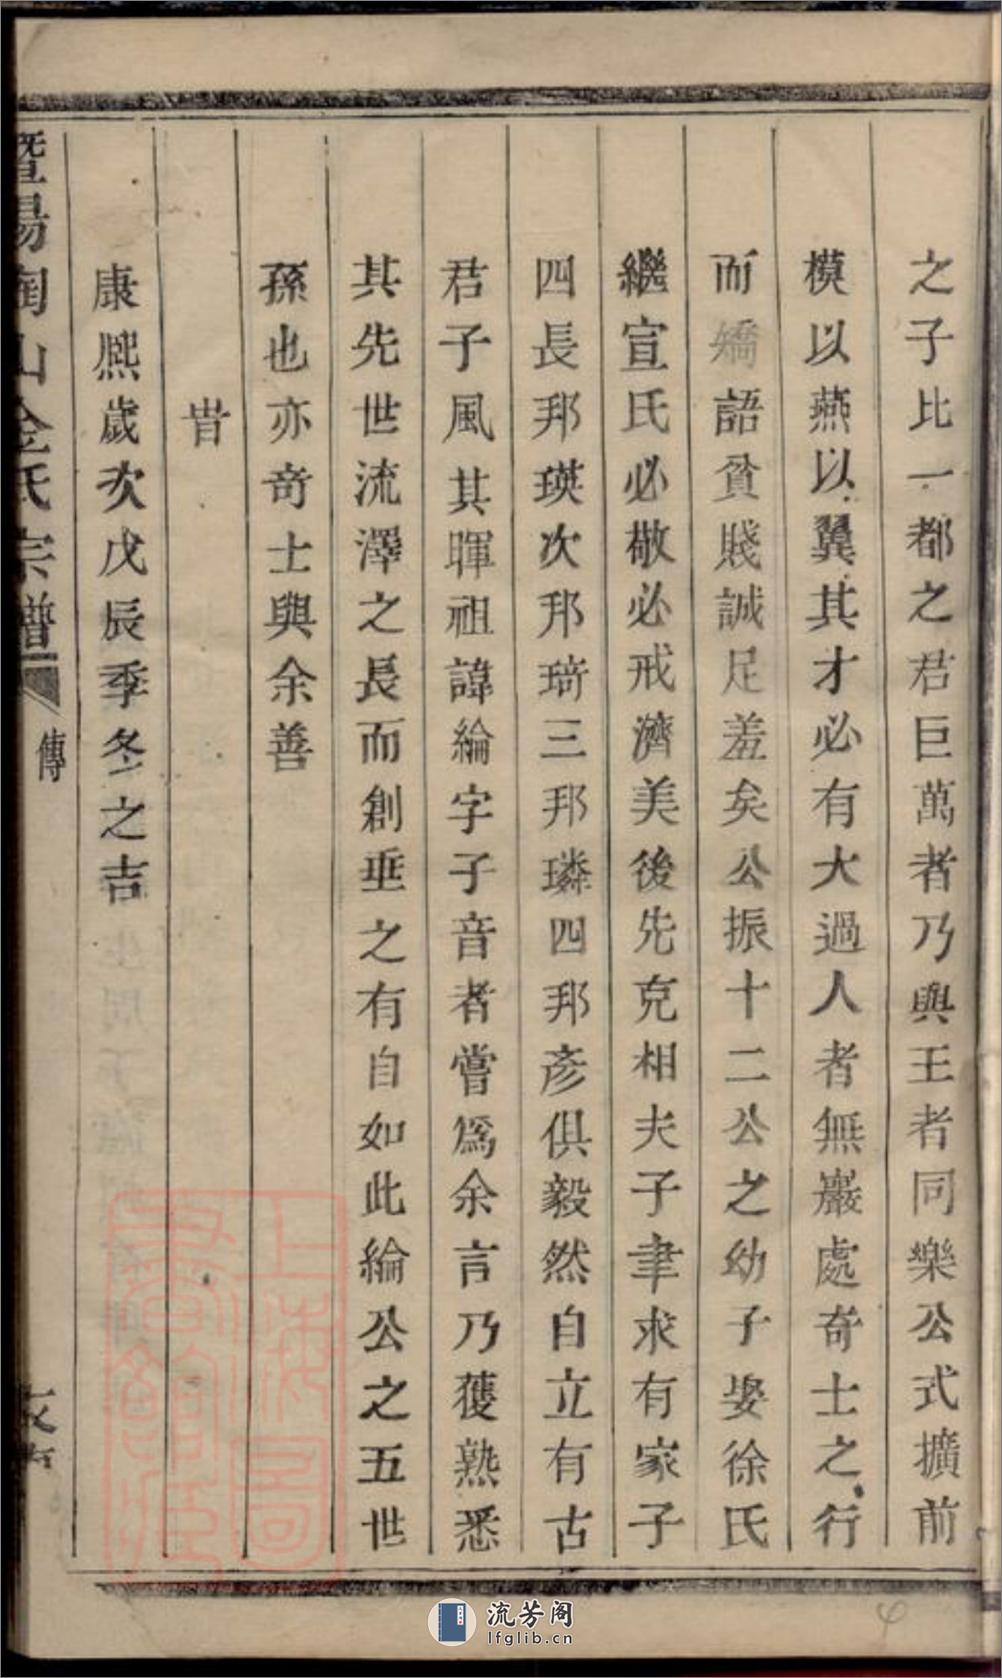 之子比一都之君巨萬者乃與王者同樂公式擴前
模以燕以翼其才必有大過人者無巖處奇士之行
而嬌語貧賤誠足羞矣公振十二公之幼子娶徐氏
繼宣氏必敬必戒濟美後先克相夫子聿求有家子
四長邦瑛次邦琦三邦璘四邦彥俱毅然自立有古
君子風其暉祖諱綸字子音者嘗爲余言乃獲熟悉
其先世流澤之長而創垂之有自如此綸公之五世
孫也亦奇士與余善
旹
康熙歲次戊辰季冬之吉
暨陽陶山金氏宗譜
傳
上海圖書館藏
流芳阁
lfglib.cn